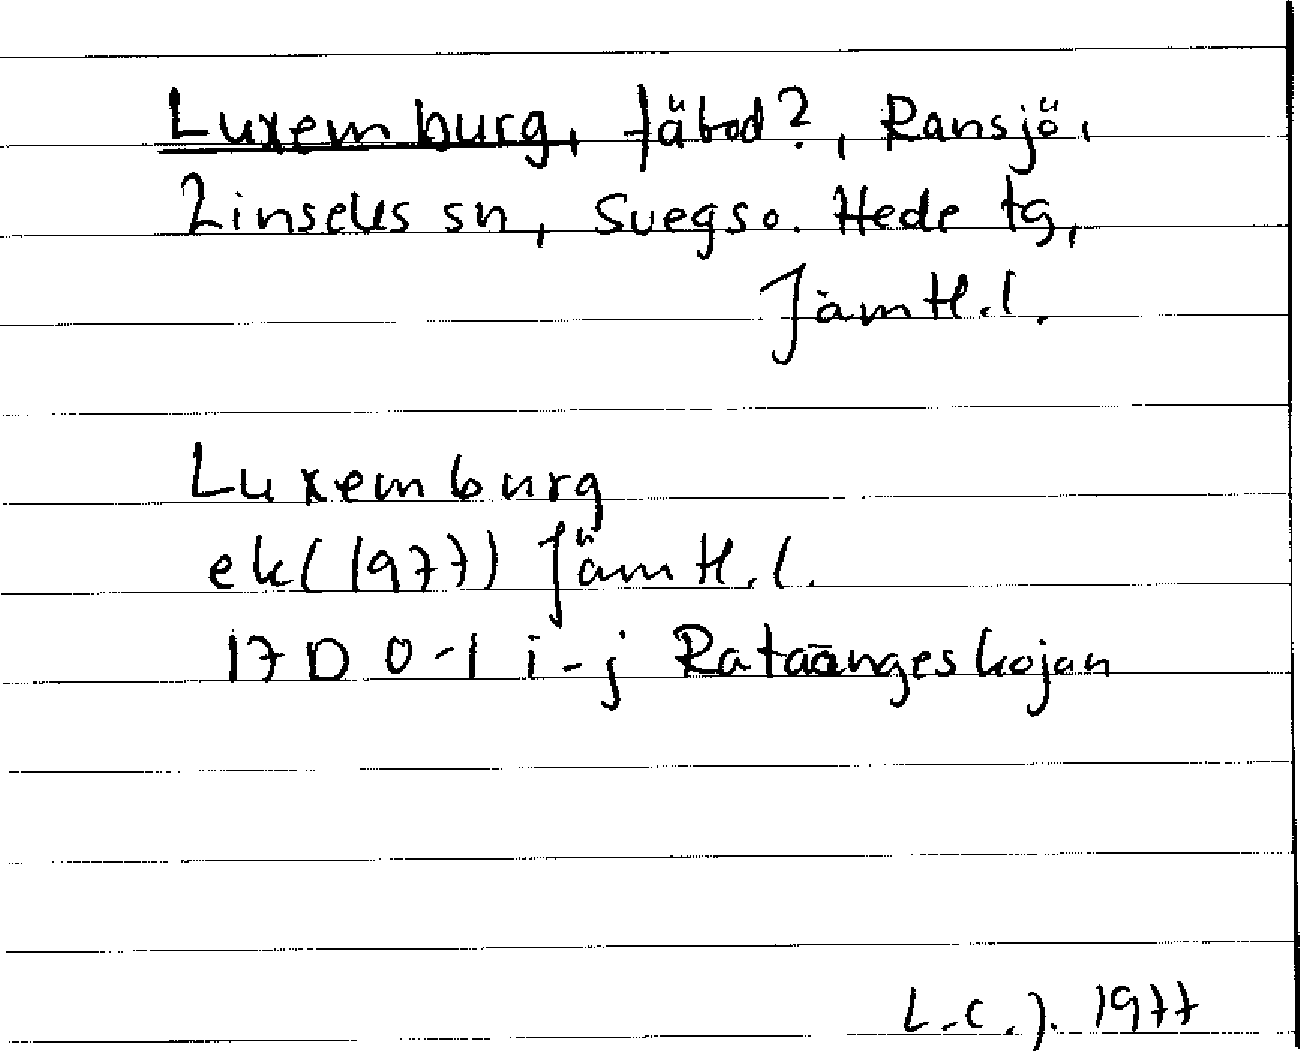 Luxemburg, fäbod?, Ransjö,
Linsells sn, Svegs o. Hede tg,
Jämtl.l.
Luxemburg
ek(1977) Jämtl.l.
17D 0-1 i-j Rataångeskojan
L.C.J. 1977